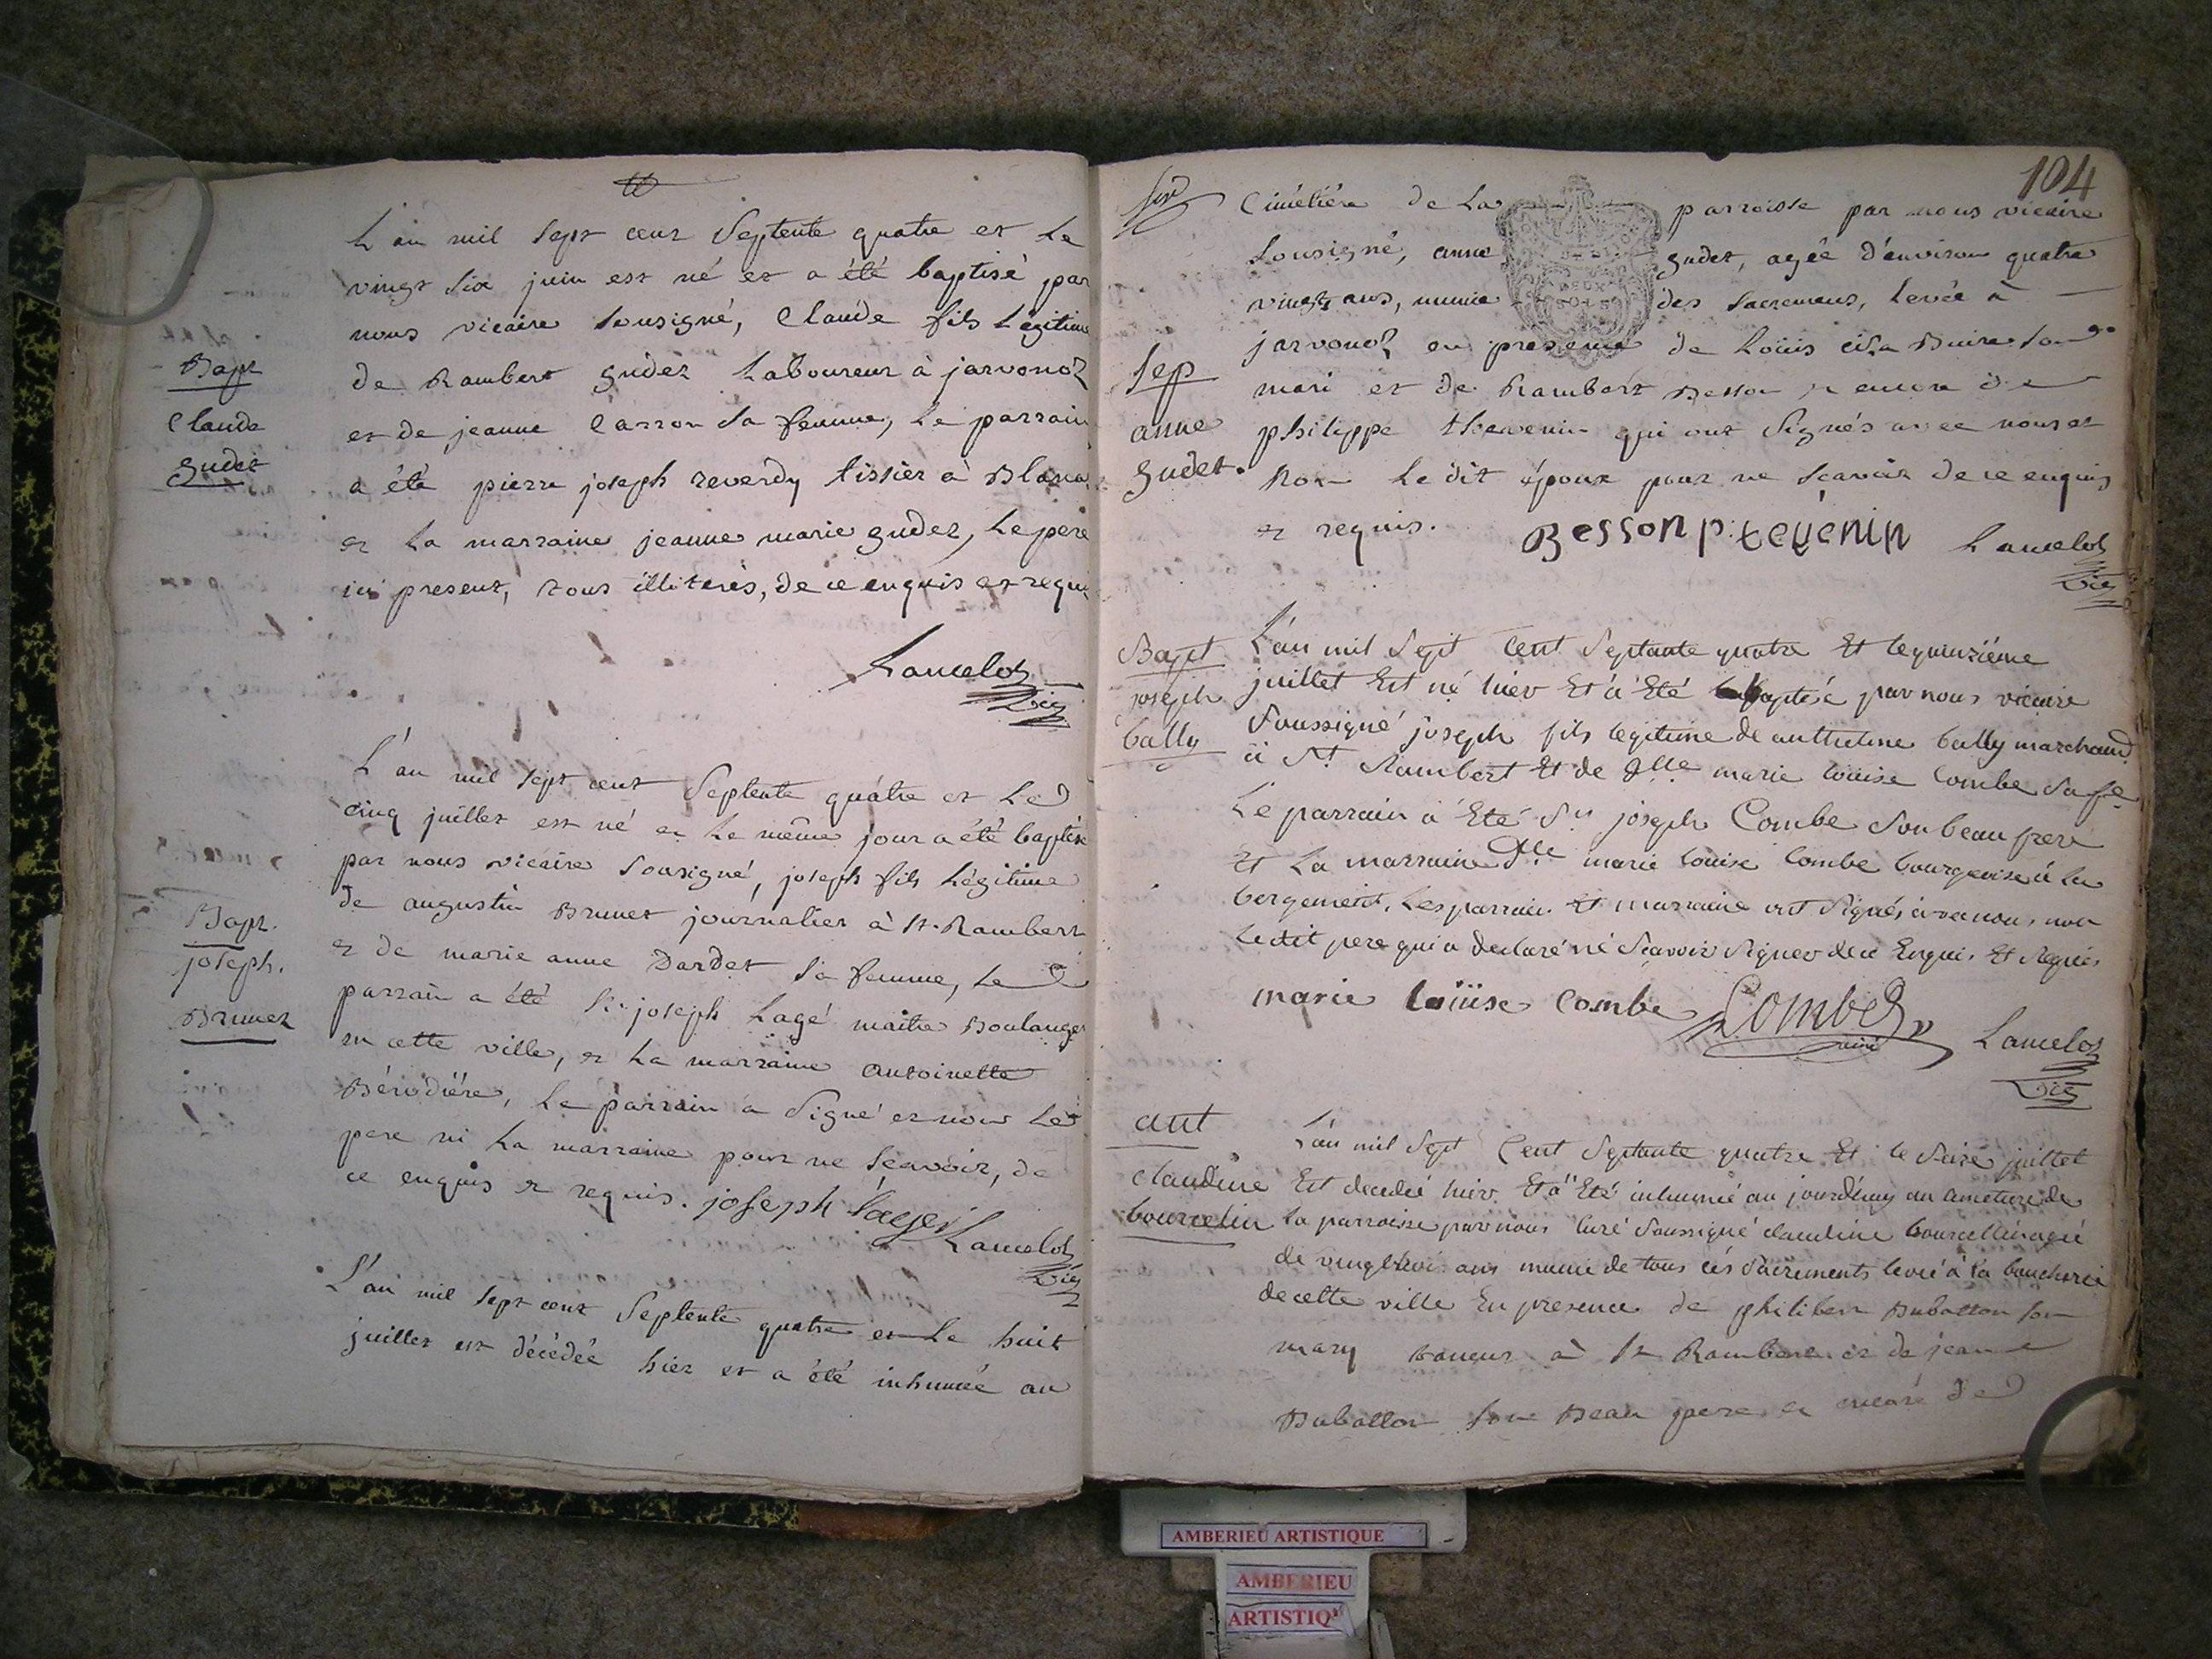 L'an mil sept cent Septente quatre et Le
vingt Six juin est né et a été baptisé par
nous vicaire Sousigné, Claude fils Légitime
Bapt
de Rambert gudet Laboureur à jarvonoz
Claude
et de jeanne Carron Sa femme, Le parrain
gudet
a été pierre joseph reverdy tissier à Blana
et La marraine jeanne marie gudet, Le pere
ici present, tous illiterés, de ce enquis et requis
Lancelot
Vic
L'an mil sept cent Septente quâtre et Le
cinq juillet est né et Le même jour a été baptisé
par nous vicaire Sousigné, joseph fils Légitime
Bapt.
de augustin Brunet journalier à St. Rambert
joseph.
et de marie anne Dardet Sa femme, Le
Brunet
parrain a été Sr joseph Lagé maitre Boulanger
en cette ville, et La marraine antoinette
Bérodiére, Le parrain a Signé et non Le
pere ni La marraine pour ne Sçavoir, de
ce enquis et requis. joseph Lagé Lancelot
Vic
L'an mil sept cent Septente quatre et Le huit
juillet est décédée hier et a été inhumée au
104
Cimétiére de La parroisse par nous vicaire
Sousigné, anne gudet, agée d'environ quatre
vingt ans, munie des Sacremens, Levée à
DEUX SOLS
jarvonoz en presence de Loüis Buire Son
Sep
mari et de Rambert Besson et encore de
anne
philippe thevenin qui ont Signés avec nous et
gudet.
Non Le dit époux pour ne Scavoir de ce enquis
et requis. Besson p: tevenin Lancelot
Vic
Bapt
joseph
bally
L'an mil Sept Cent Septante quatre Et le quinziéme
juillet Est né hier Et à Eté baptisé par nous vicaire
Soussigné joseph fils légitime de anthelme bally marchand
à St Rambert Et de Dlle marie loüise Combe Sa fe
Le parrain à Eté Sr joseph Combe Son beau frere
Et La marraine Dlle marie loüise Combe bourgeoise à La
bergement, Les parrain Et marraine ont Signés avec nous non
ledit pere qui a declaré né Scavoir Signer de ce Enquis Et Requis
marie loüise Combe Combe Lancelot
Vic
ant
claudine
bourcelin
L'an mil Sept Cent Septante quatre Et le Seize juillet
Est decedeé hier Et à Eté inhumé au jourdhuy au cimetiere de
la parroisse par nous Curé Soussigné claudine bourcellin agée
de vingt huit ans munie de tous ces Sacrements levée à la boucherie
de cette ville En presence de philibert Dubatton Son
mary taneur à St Rambert et de jean
Dubatton Son Beau pere et encore de
AMBERIEU ARTISTIQUE
AMBERIEU
ARTISTIQ